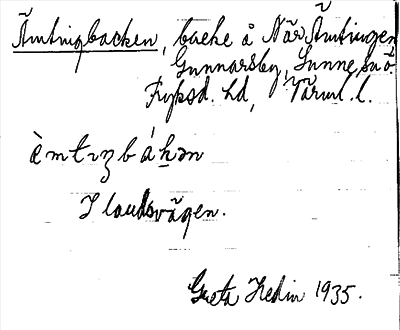 Ämtingbacken, backe å När Ämtingen
Gunnarsby, Sunne sn ö.
Fryksd. hd, Värml. l.
I landsvägen.
Greta Hedin 1935.